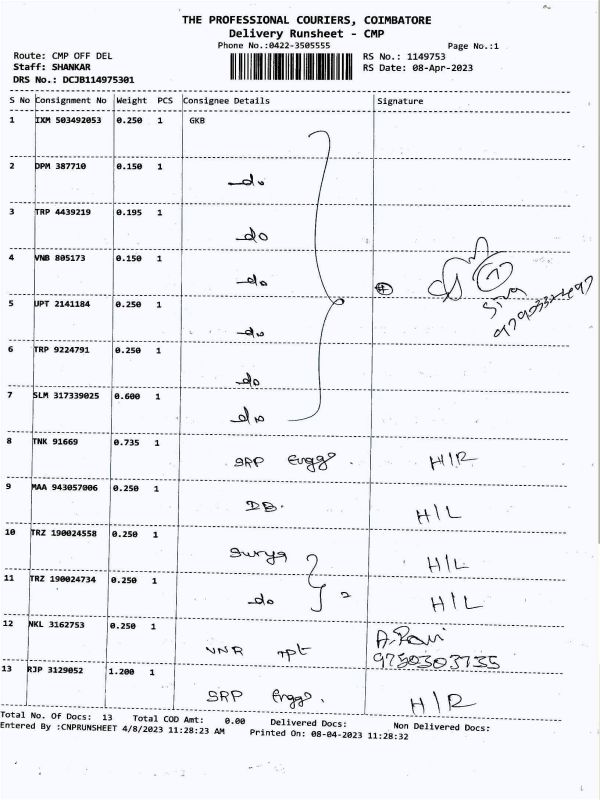 THE PROFESSIONAL COURIERS, COIMBATORE
Delivery Runsheet - CMP
Phone No.:0422-3505555 Page No.:1
Route: CMP OFF DEL RS No.: 1149753
Staff: SHANKAR RS Date: 08-Apr-2023
DRS No.: DCJB114975301
S No Consignment No Weight PCS Consignee Details Signature
1 IXM 503492053 0.250 1 GKB
2 DPM 387710 0.150 1 do
3 TRP 4439219 0.195 1 do
4 VNB 805173 0.150 1 do
Siva
5 UPT 2141184 0.250 1 do
6 TRP 9224791 0.250 1 do
7 SLM 317339025 0.600 1 do
8 TNK 91669 0.735 1 SRP Enggs. H/R
9 MAA 943057006 0.250 1 DB. H/L
10 TRZ 190024558 0.250 1 Surya H/L
11 TRZ 190024734 0.250 1 do 2 H/L
12 NKL 3162753 0.250 1 VNR tpt A. Ravi
9750303735
13 RJP 3129052 1.200 1 SRP Enggs. H/R
Total No. Of Docs: 13 Total COD Amt: 0.00 Delivered Docs: Non Delivered Docs:
Entered By :CNPRUNSHEET 4/8/2023 11:28:23 AM Printed On: 08-04-2023 11:28:32